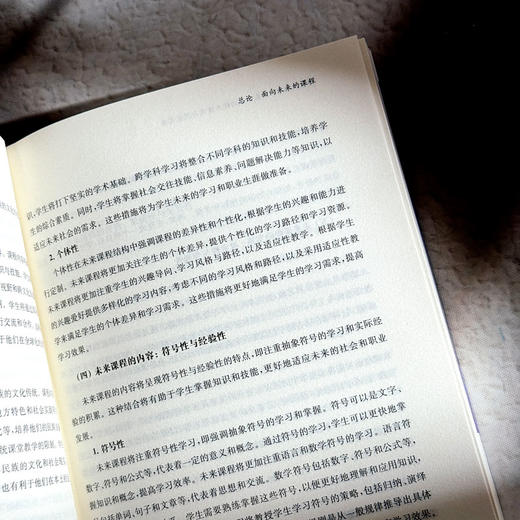 总论 面向未来的课程
识,学生将打下坚实的学术基础。跨学科学习将整合不同学科的知识和技能,培养学
生的综合素质。同时,学生将掌握社会交往技能、信息素养、问题解决能力等知识,以
适应未来社会的需求。这些措施将为学生未来的学习和职业生涯做准备。
2. 个体性
个体性在未来课程结构中强调课程的差异性和个性化,根据学生的兴趣和能力进
行定制。未来课程将更加关注学生的个体差异,提供个性化的学习路径和学习资源。
未来课程将更加注重学生的兴趣导向、学习风格与路径,以及适应性教学。根据学生
的兴趣爱好提供多样化的学习内容,考虑不同的学习风格和路径,以及采用适应性教
学来满足学生的个体差异和学习需求。这些措施将更好地满足学生的学习需求,提高
学习效果。
(四) 未来课程的内容:符号性与经验性
未来课程的内容将呈现符号性与经验性的特点,即注重抽象符号的学习和实际经
验的积累。这种结合将有助于学生掌握知识和技能,更好地适应未来的社会和职业
发展。
1. 符号性
未来课程将注重符号性学习,即强调抽象符号的学习和掌握。符号可以是文字、
数字、符号和公式等,代表着一定的意义和概念。通过符号的学习,学生可以更快地掌
握知识和概念,提高学习效率。未来课程将更加注重语言和数学符号的学习。语言符
号包括单词、句子和文章等,代表着思想和交流。数学符号包括数字、符号和公式等,
学生需要熟练掌握这些符号,以便更好地理解和应用知识,
将教授学生学习符号的策略,包括归纳、演绎
则是从一般规律推导出具体
学习效果。
民族的文化传统,
地方特色和社会实
化等,培养他们的民族
统课堂教学的陈旧、
民族的文化和社会
也有利于他们在本土
行交流和合作,
于他们在全球化